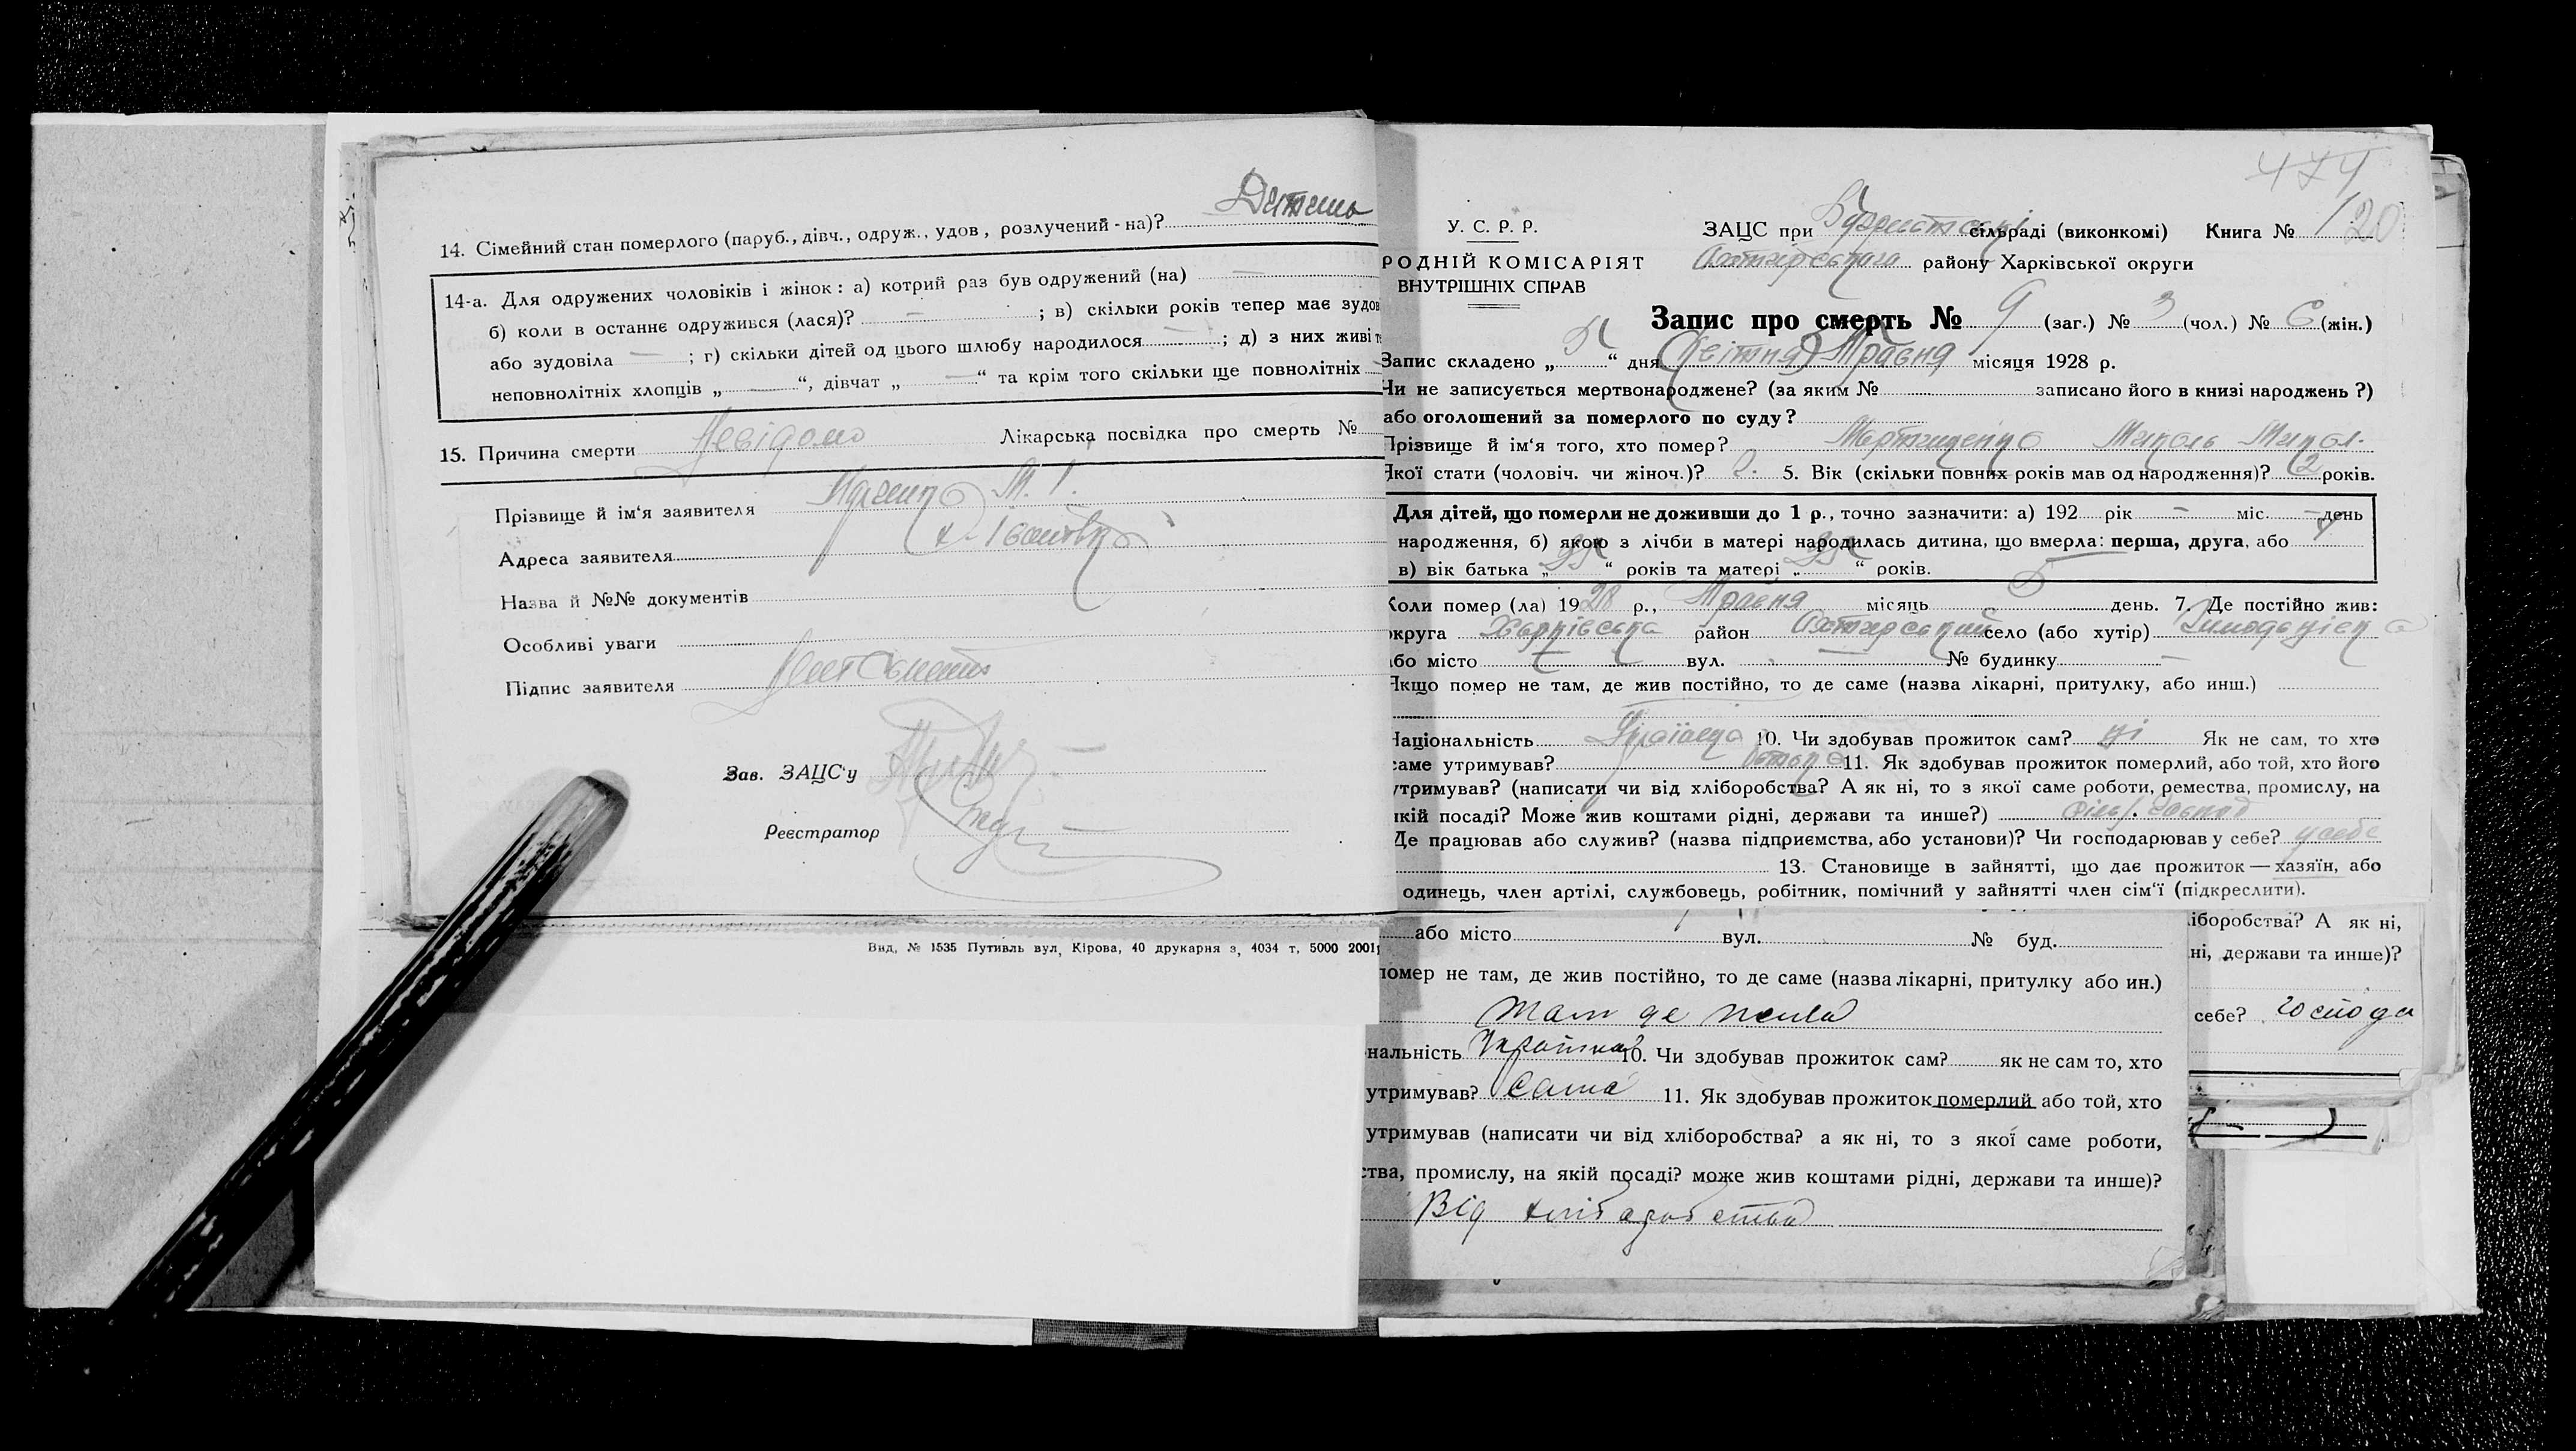 14. Сімейний стан померлого (паруб., дівч., одруж., удов, розлучений-на)? Дитина
14-а. Для одружених чоловіків і жінок: а) котрий раз був одружений (на) —
б) коли в останнє одружився (лася)? — ; в) скільки років тепер має зудов
або зудовіла — ; г) скільки дітей од цього шлюбу народилося — ; д) з них живі т
неповнолітніх хлопців „ — “, дівчат „ — “ та крім того скільки ще повнолітніх
15. Причина смерти Невідомо Лікарська посвідка про смерть №
Прізвище й ім‘я заявителя М. І.
Адреса заявителя х.
Назва й №№ документів
Особливі уваги
Підпис заявителя
Зав. ЗАЦС‘у
Реєстратор
Вид. № 1535 Путивль вул, Кірова, 40 друкарня з, 4034 т, 5000 2001
474
У. С. Р. Р.
РОДНІЙ КОМІСАРІЯТ
ВНУТРІШНІХ СПРАВ
ЗАЦС при сільраді (виконкомі) Книга № 120
Охтирського району Харківської округи
Запис про смерть № 9 (заг.) № 3 (чол.) № 6 (жін.)
Запис складено „ “ дня (Квітня) Травня місяця 1928 р.
Чи не записується мертвонароджене? (за яким № записано його в книзі народжень ?)
або оголошений за померлого по суду?
Прізвище й ім‘я того, хто помер? Миколь Микол.
Якої стати (чоловіч. чи жіноч.)? 5. Вік (скільки повних років мав од народження)? 2 років.
Для дітей, що померли не доживши до 1 р., точно зазначити: а) 192 рік — міс. — день
народження, б) якою з лічби в матері народилась дитина, що вмерла: перша, друга, або 4
в) вік батька „ “ років та матері „ “ років.
Коли помер (ла) 1928 р., Травня місяць 5 день. 7. Де постійно жив:
округа Харківська район Охтирський село (або хутір)
або місто — вул. — № будинку —
Якщо помер не там, де жив постійно, то де саме (назва лікарні, притулку, або инш.)
Національність 10. Чи здобував прожиток сам? ні Як не сам, то хто
саме утримував? батько 11. Як здобував прожиток померлий, або той, хто його
утримував? (написати чи від хліборобства? А як ні, то з якої саме роботи, ремества, промислу, на
якій посаді? Може жив коштами рідні, держави та инше?) сільс. господ
Де працював або служив? (назва підприємства, або установи)? Чи господарював у себе? у себе
13. Становище в зайнятті, що дає прожиток — хазяїн, або
одинець, член артілі, службовець, робітник, помічний у зайнятті член сім‘ї (підкреслити).
або місто вул. № буд.
помер не там, де жив постійно, то де саме (назва лікарні, притулку або ин.)
там де жила
нальність Українка 10. Чи здобував прожиток сам? як не сам то, хто
утримував? Сама 11. Як здобував прожиток померлий або той, хто
утримував (написати чи від хліборобства? а як ні, то з якої саме роботи,
ства, промислу, на якій посаді? може жив коштами рідні, держави та инше)?
Від хліборобства
іборобства? А як ні,
ні, держави та инше)?
себе? господа